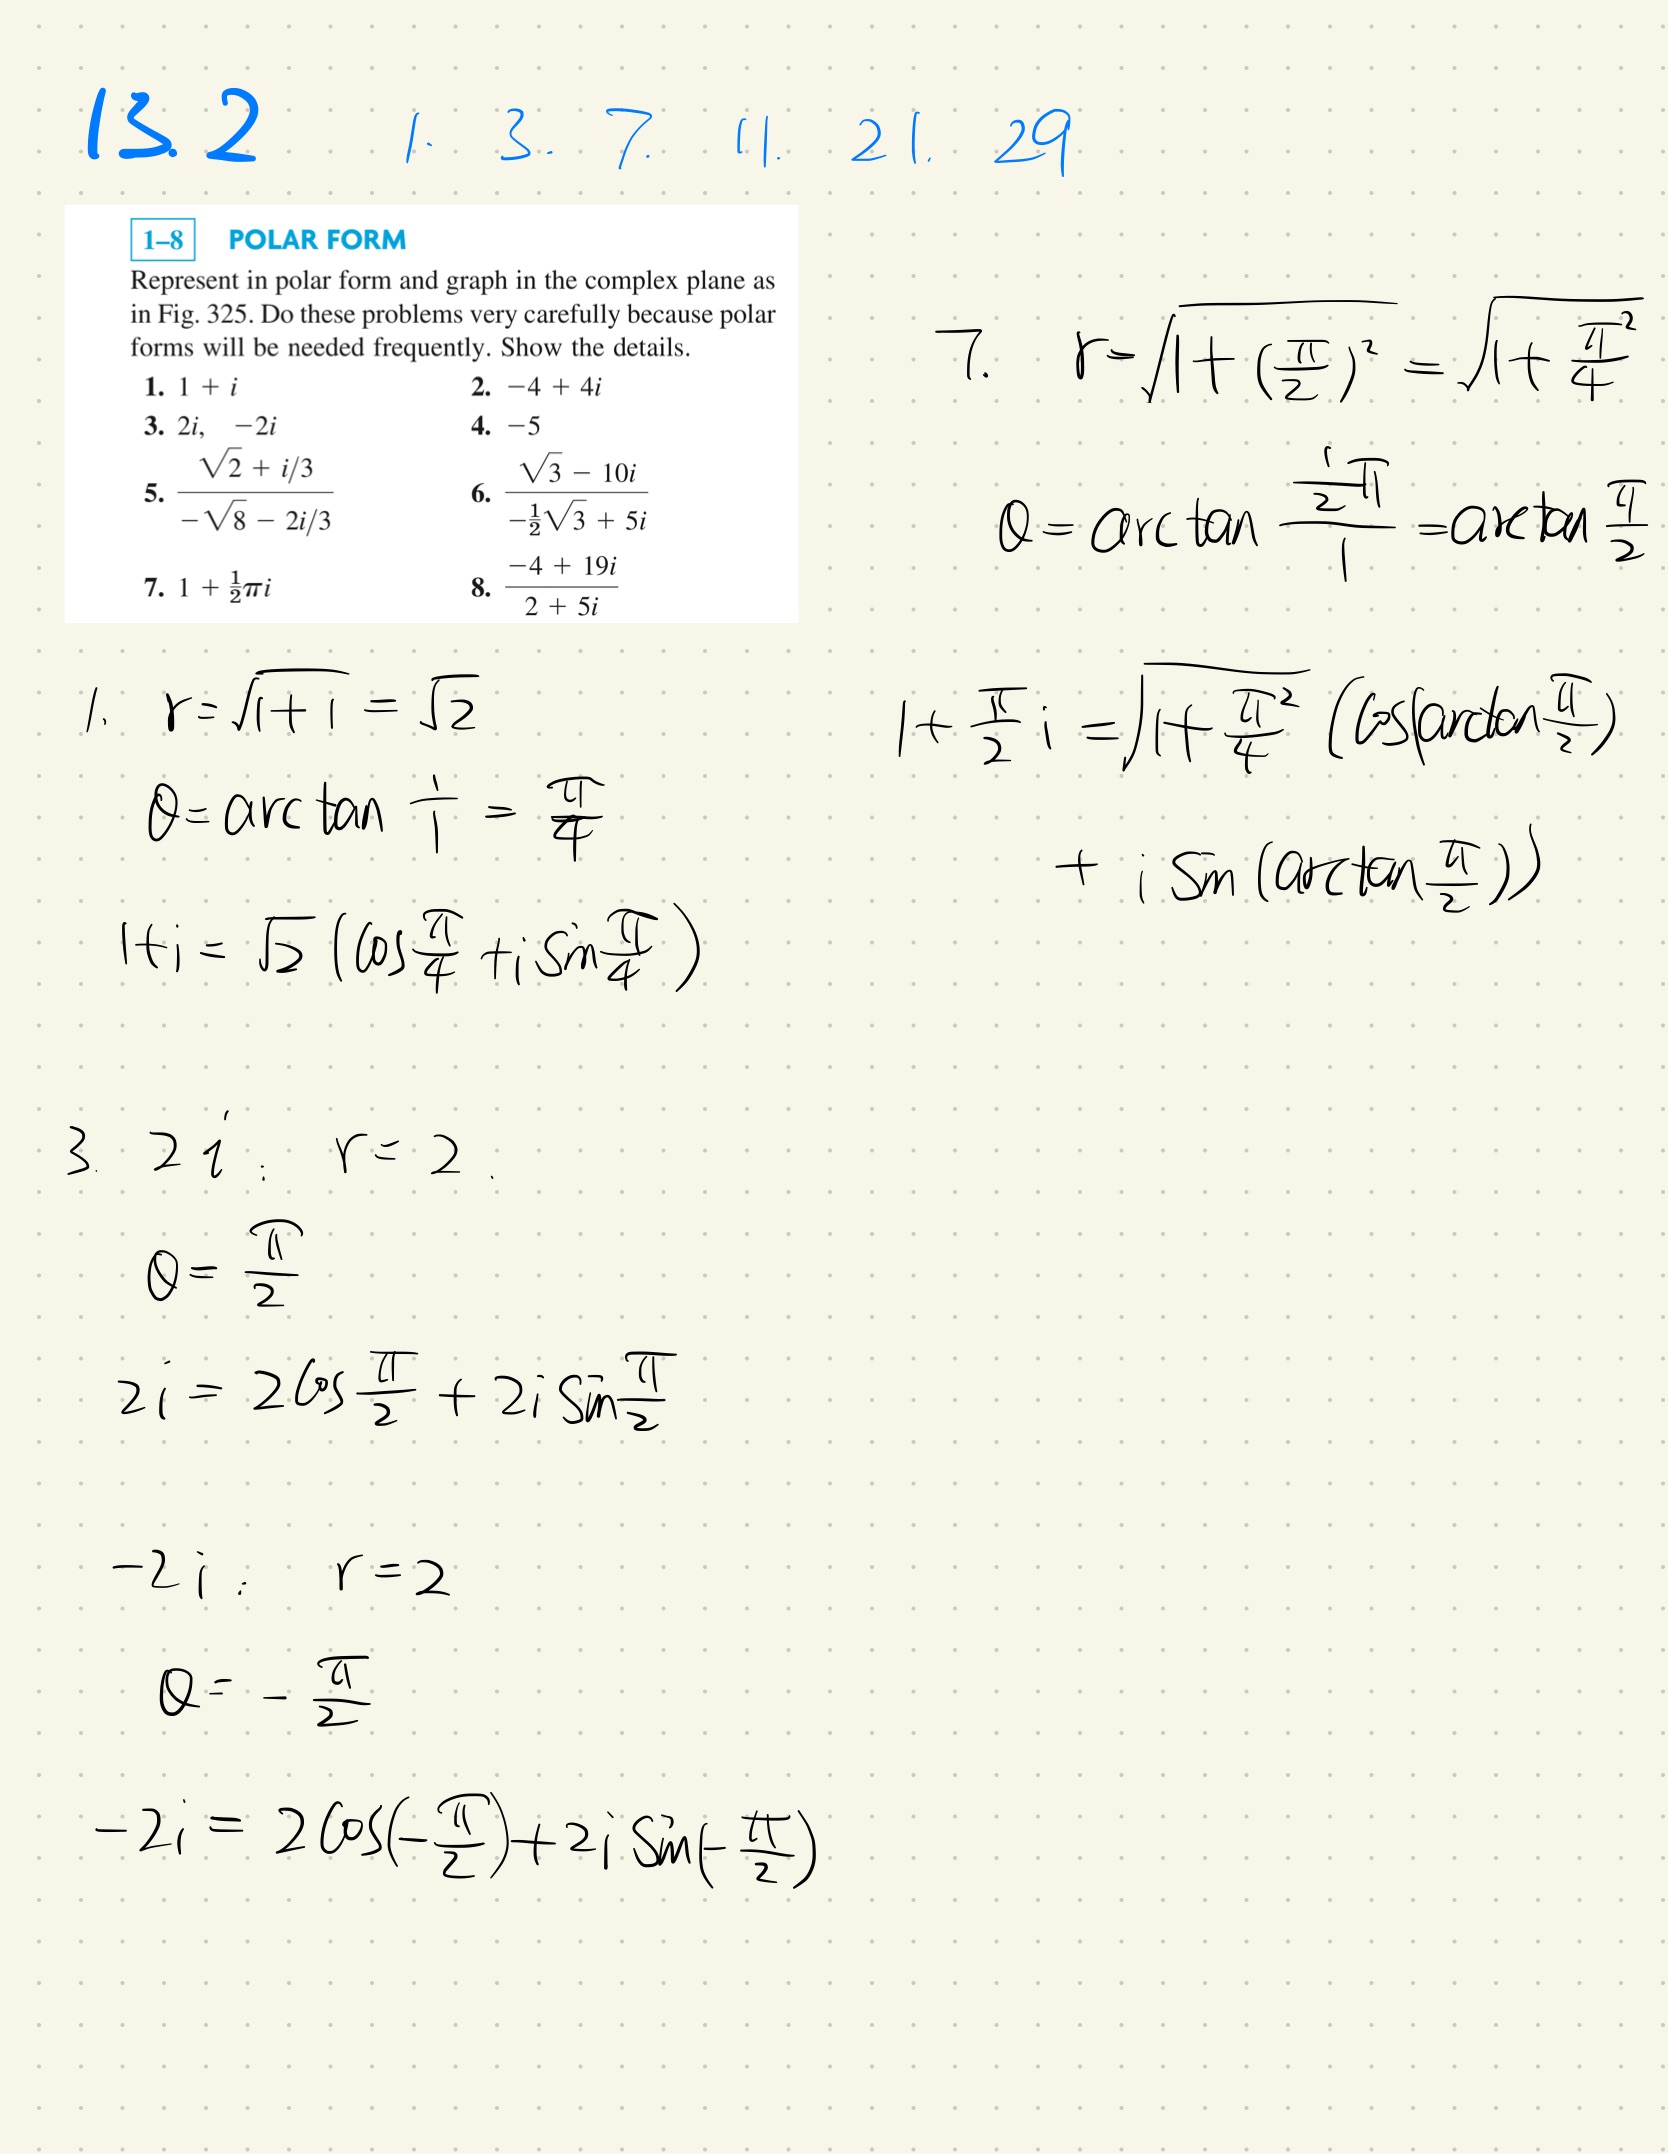 13.2 1. 3. 7. 11. 21. 29
1–8 POLAR FORM
Represent in polar form and graph in the complex plane as
in Fig. 325. Do these problems very carefully because polar
forms will be needed frequently. Show the details.
1. 1 + i 2. −4 + 4i
3. 2i, −2i 4. −5
5. (√2 + i/3)/(−√8 − 2i/3) 6. (√3 − 10i)/(−½√3 + 5i)
7. 1 + ½πi 8. (−4 + 19i)/(2 + 5i)
1. r = √(1+1) = √2
θ = arctan 1/1 = π/4
1+i = √2 (cos π/4 + i sin π/4)
3. 2i : r = 2.
θ = π/2
2i = 2 cos π/2 + 2i sin π/2
−2i : r = 2
θ = − π/2
−2i = 2 cos(−π/2) + 2i sin(−π/2)
7. r = √(1+(π/2)²) = √(1+π²/4)
θ = arctan (½π)/1 = arctan π/2
1 + π/2 i = √(1+π²/4) (cos(arctan π/2)
+ i sin (arctan π/2))